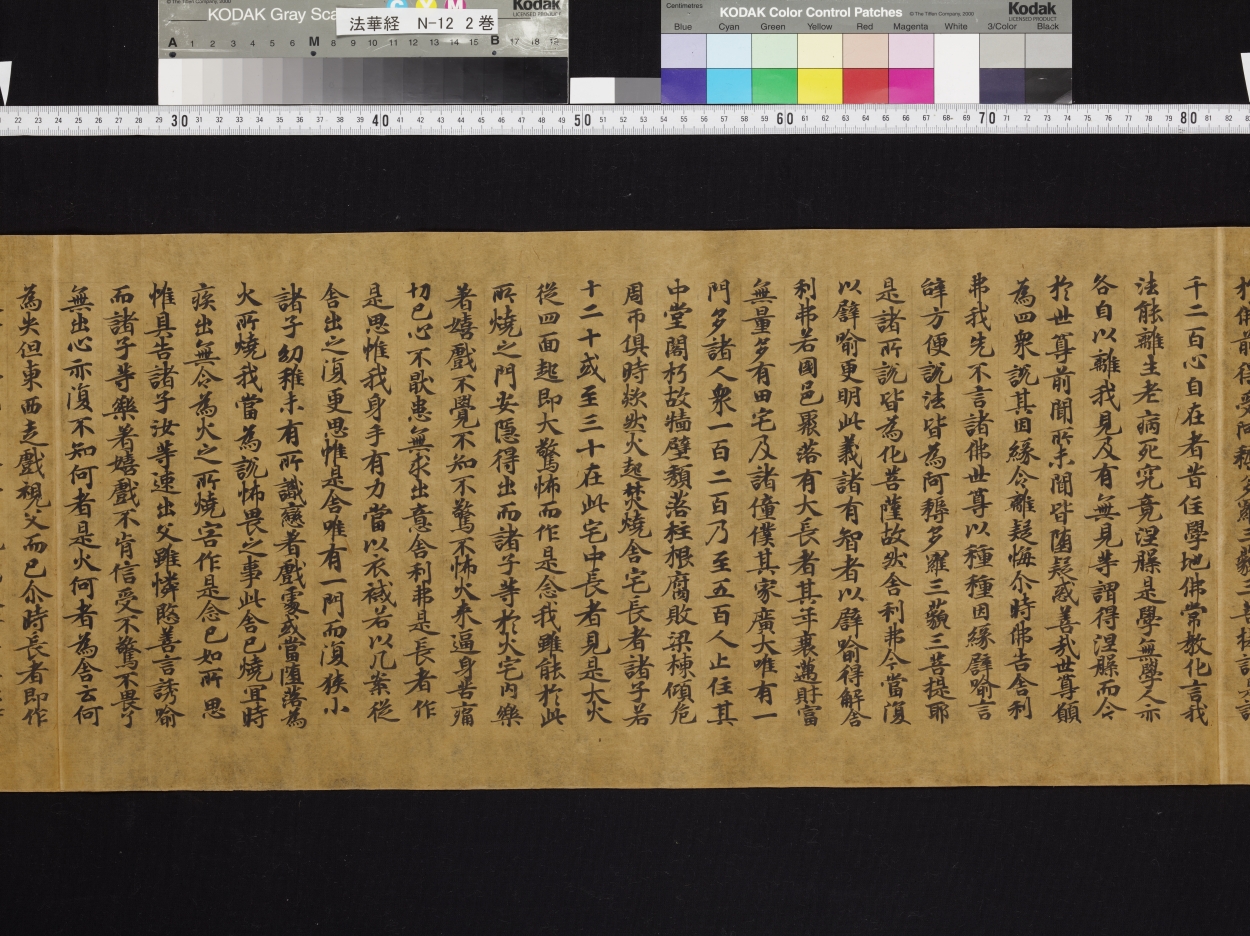 KODAK Gray Scale
© The Tiffen Company, 2000
C Y M
Kodak
LICENSED PRODUCT
法華経 N-12 2巻
A 1 2 3 4 5 6 M 8 9 10 11 12 13 14 15 B 17 18 19
Centimetres
KODAK Color Control Patches
© The Tiffen Company, 2000
Kodak
LICENSED PRODUCT
Blue Cyan Green Yellow Red Magenta White 3/Color Black
22 23 24 25 26 27 28 29 30 31 32 33 34 35 36 37 38 39 40 41 42 43 44 45 46 47 48 49 50 51 52 53 54 55 56 57 58 59 60 61 62 63 64 65 66 67 68 69 70 71 72 73 74 75 76 77 78 79 80 81 82
千二百心自在者昔住學地佛常教化言我
法能離生老病死究竟涅槃是學無學人亦
各自以離我見及有無見等謂得涅槃而今
於世尊前聞所未聞皆墮疑惑善哉世尊願
為四衆說其因緣令離疑悔尒時佛告舍利
弗我先不言諸佛世尊以種種因緣譬喻言
辝方便說法皆為阿耨多羅三藐三菩提耶
是諸所說皆為化菩薩故然舍利弗今當復
以譬喻更明此義諸有智者以譬喻得解舍
利弗若國邑聚落有大長者其年衰邁財富
無量多有田宅及諸僮僕其家廣大唯有一
門多諸人衆一百二百乃至五百人止住其
中堂閣朽故墻壁頹落柱根腐敗梁棟傾危
周帀俱時欻然火起焚燒舍宅長者諸子若
十二十或至三十在此宅中長者見是大火
從四面起即大驚怖而作是念我雖能於此
所燒之門安隱得出而諸子等於火宅內樂
著嬉戲不覺不知不驚不怖火来逼身苦痛
切已心不猒患無求出意舍利弗是長者作
是思惟我身手有力當以衣裓若以几案從
舍出之復更思惟是舍唯有一門而復狹小
諸子幼稚未有所識戀著戲處或當墮落為
火所燒我當為說怖畏之事此舍已燒宜時
疾出無令為火之所燒害作是念已如所思
惟具告諸子汝等速出父雖憐愍善言誘喻
而諸子等樂著嬉戲不肯信受不驚不畏了
無出心亦復不知何者是火何者為舍云何
為失但東西走戲視父而已尒時長者即作